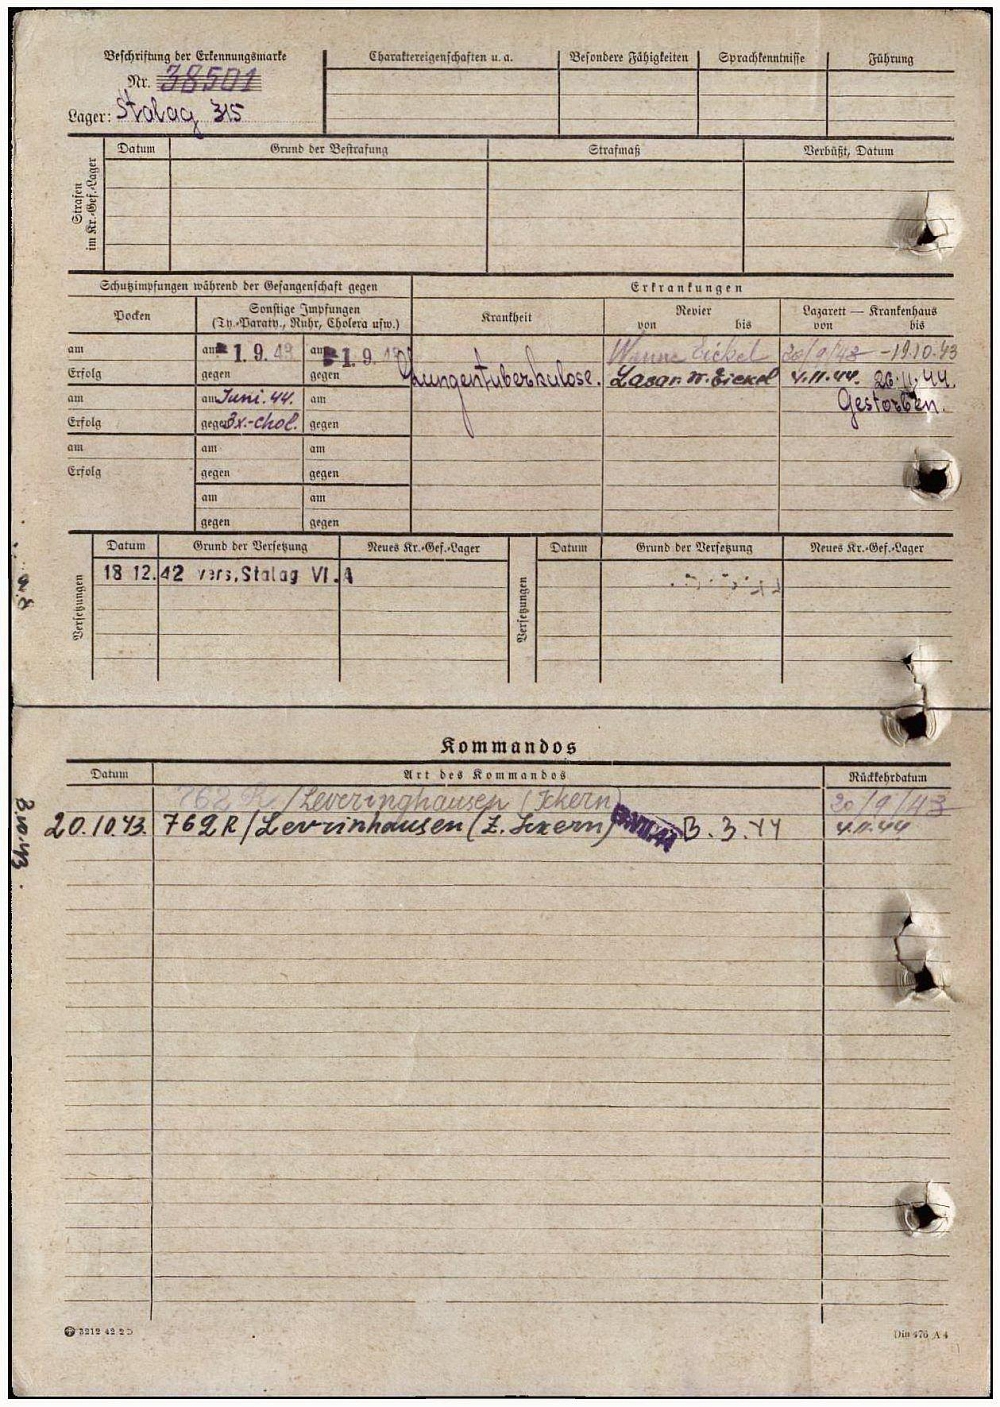 Beschriftung der Erkennungsmarke
Nr. 38501
Lager: Stalag 315
Charaktereigenschaften u. a.
Besondere Fähigkeiten
Sprachkenntnisse
Führung
Strafen im Kr.-Gef.-Lager
Datum
Grund der Bestrafung
Strafmaß
Verbüßt, Datum
Schutzimpfungen während der Gefangenschaft gegen
Erkrankungen
Pocken
Sonstige Impfungen
(Ty.-Paraty., Ruhr, Cholera usw.)
Krankheit
Revier
von bis
Lazarett — Krankenhaus
von bis
am am 1. 9. 43 am 1. 9. Wanne Eickel 20/9/43 -19.10.43
Erfolg gegen gegen Lungentuberkulose. Lazar. W. Eickel 4.11.44. 26.11.44.
am am Juni. 44. am Gestorben.
Erfolg gegen 3x.-chol. gegen
am am am
Erfolg gegen gegen
am am
gegen gegen
Versetzungen
Datum Grund der Versetzung Neues Kr.-Gef.-Lager
18 12. 42 vers. Stalag VI. A
Versetzungen
Datum Grund der Versetzung Neues Kr.-Gef.-Lager
Kommandos
Datum Art des Kommandos Rückkehrdatum
762 R / Leveringhausen (Ickern) 20/9/43
20.10.43. 762 R / Levrinhausen (Z. Ickern) B. 3. 44 4.11.44
3212 42 2D
Din 476 A 4